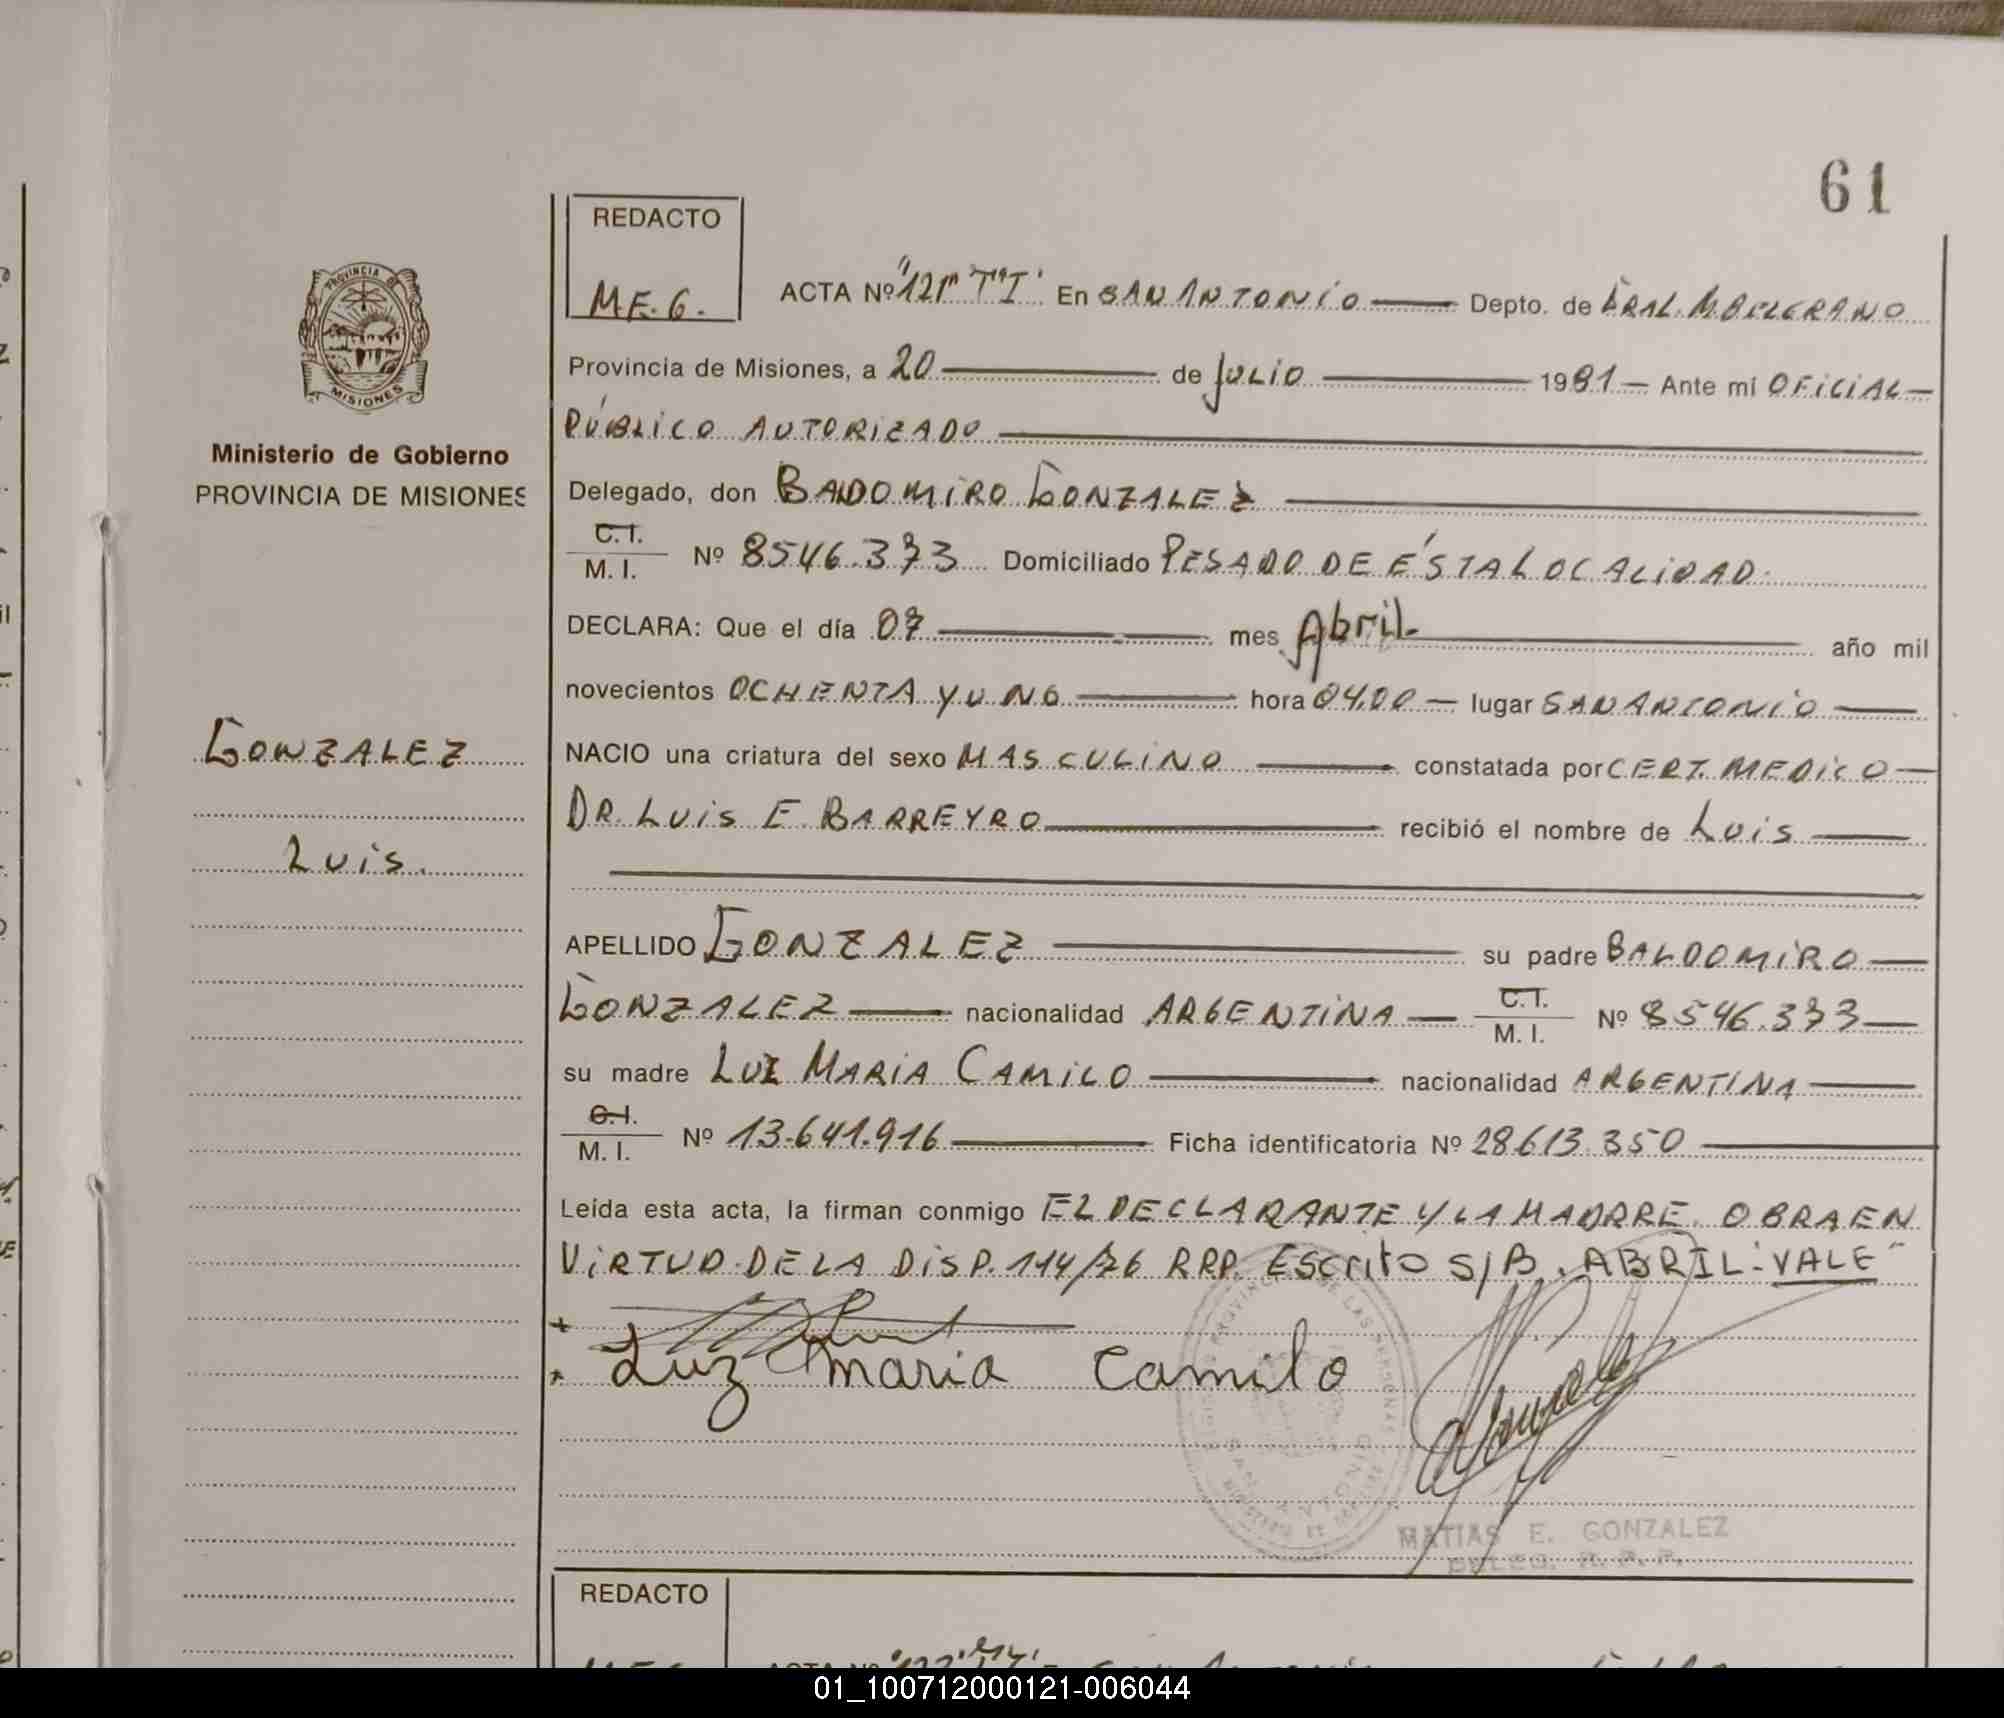 61
REDACTO
M.E.G.
ACTA Nº "121" "T" "I" En SAN ANTONIO Depto. de GRAL. M. BELGRANO
Provincia de Misiones, a 20 de JULIO 1981 Ante mi OFICIAL
PÚBLICO AUTORIZADO
Delegado, don BALDOMIRO GONZALEZ
C.I. / M. I. Nº 8546.373 Domiciliado PESADO DE ÉSTA LOCALIDAD
DECLARA: Que el día 07 mes Abril año mil
novecientos OCHENTA Y UNO hora 04,00 lugar SAN ANTONIO
NACIO una criatura del sexo MASCULINO constatada por CERT. MEDICO
DR. LUIS E. BARREYRO recibió el nombre de LUIS
APELLIDO GONZALEZ su padre BALDOMIRO
GONZALEZ nacionalidad ARGENTINA C.I. / M. I. Nº 8546.373
su madre LUZ MARIA CAMILO nacionalidad ARGENTINA
C.I. / M. I. Nº 13.641.916 Ficha identificatoria Nº 28.613.350
Leída esta acta, la firman conmigo EL DECLARANTE Y LA MADRRE. OBRA EN
VIRTUD DE LA DISP. 114/76 RPP. Escrito S/B. ABRIL: VALE
Luz maria Camilo
MATIAS E. GONZALEZ
DELEG. R. P. P.
PROVINCIA DE
MISIONES
Ministerio de Gobierno
PROVINCIA DE MISIONES
GONZALEZ
Luis.
REDACTO
01_100712000121-006044